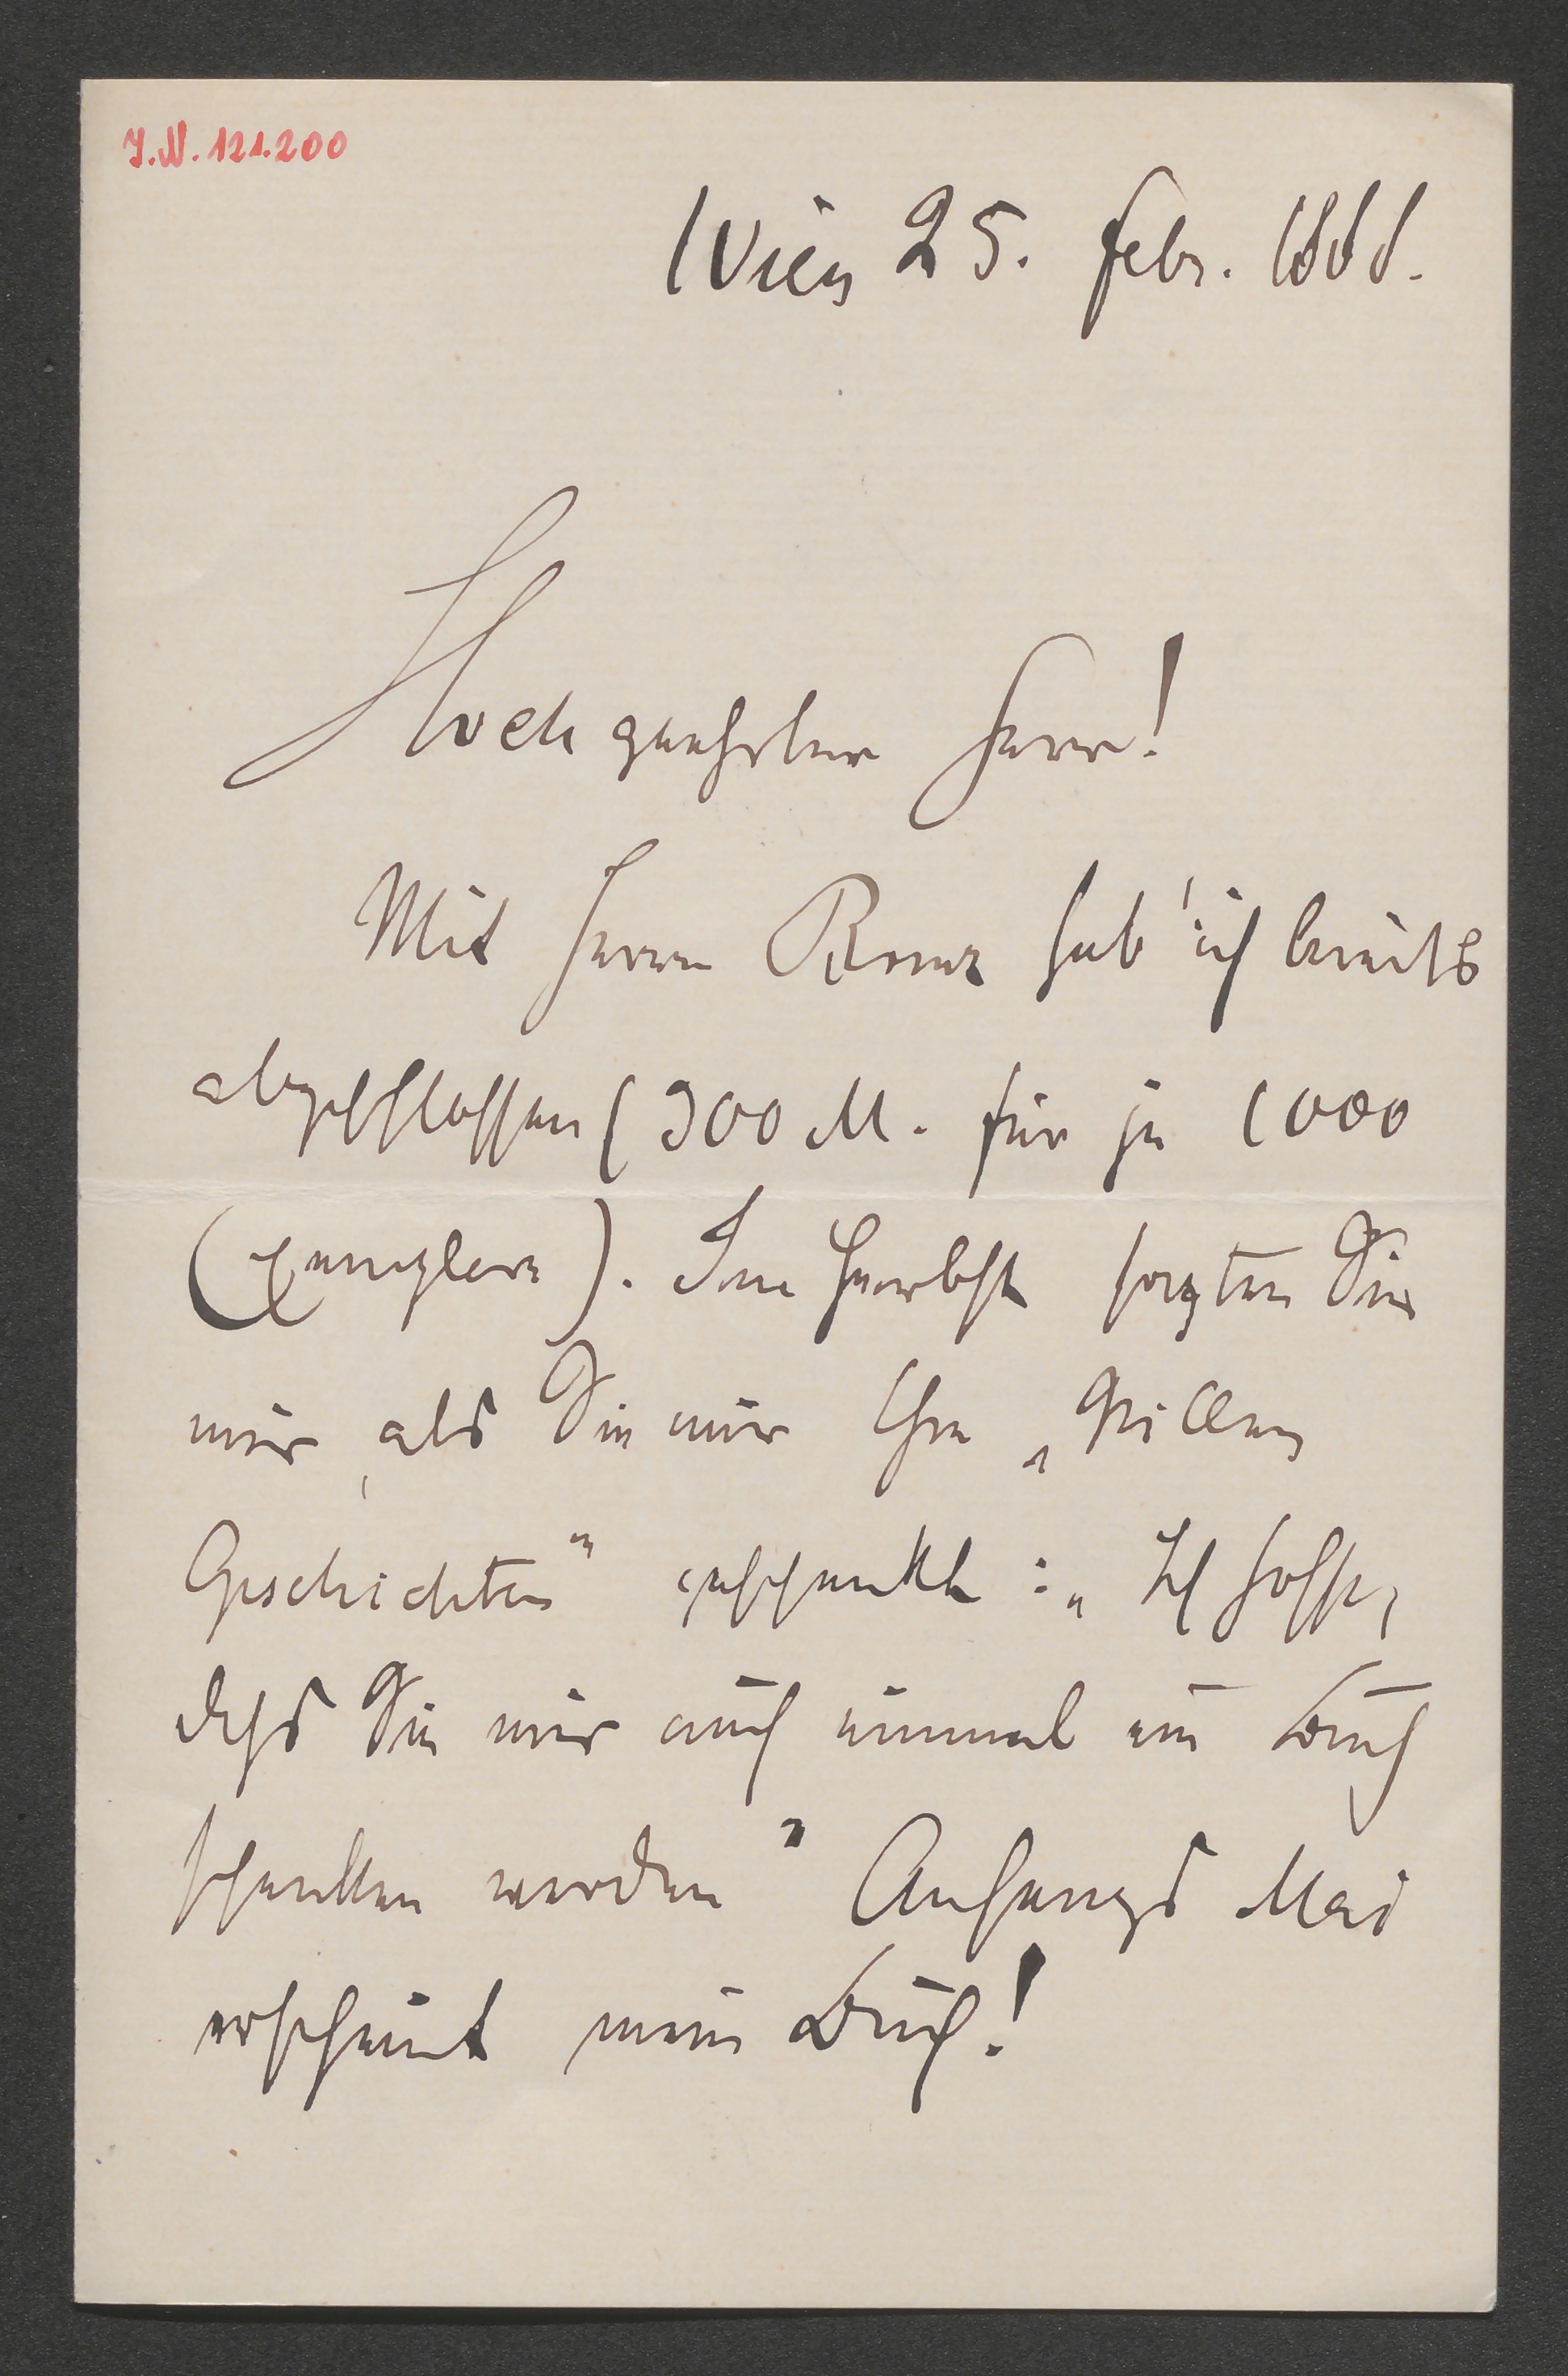 J.N. 121.200
Wien 25. Febr. 1888.
Hochgeehrter Herr!
Mit Herrn Bonz hab' ich bereits
abgeschlossen (300 M. für je 1000
Exemplare). Im Herbste sagten Sie
mir, als Sie mir Ihre „Grillen
Geschichten" geschenkt: „Ich hoffe,
dass Sie mir auch einmal ein Buch
schenken werden" Anfangs Mai
erscheint mein Buch!